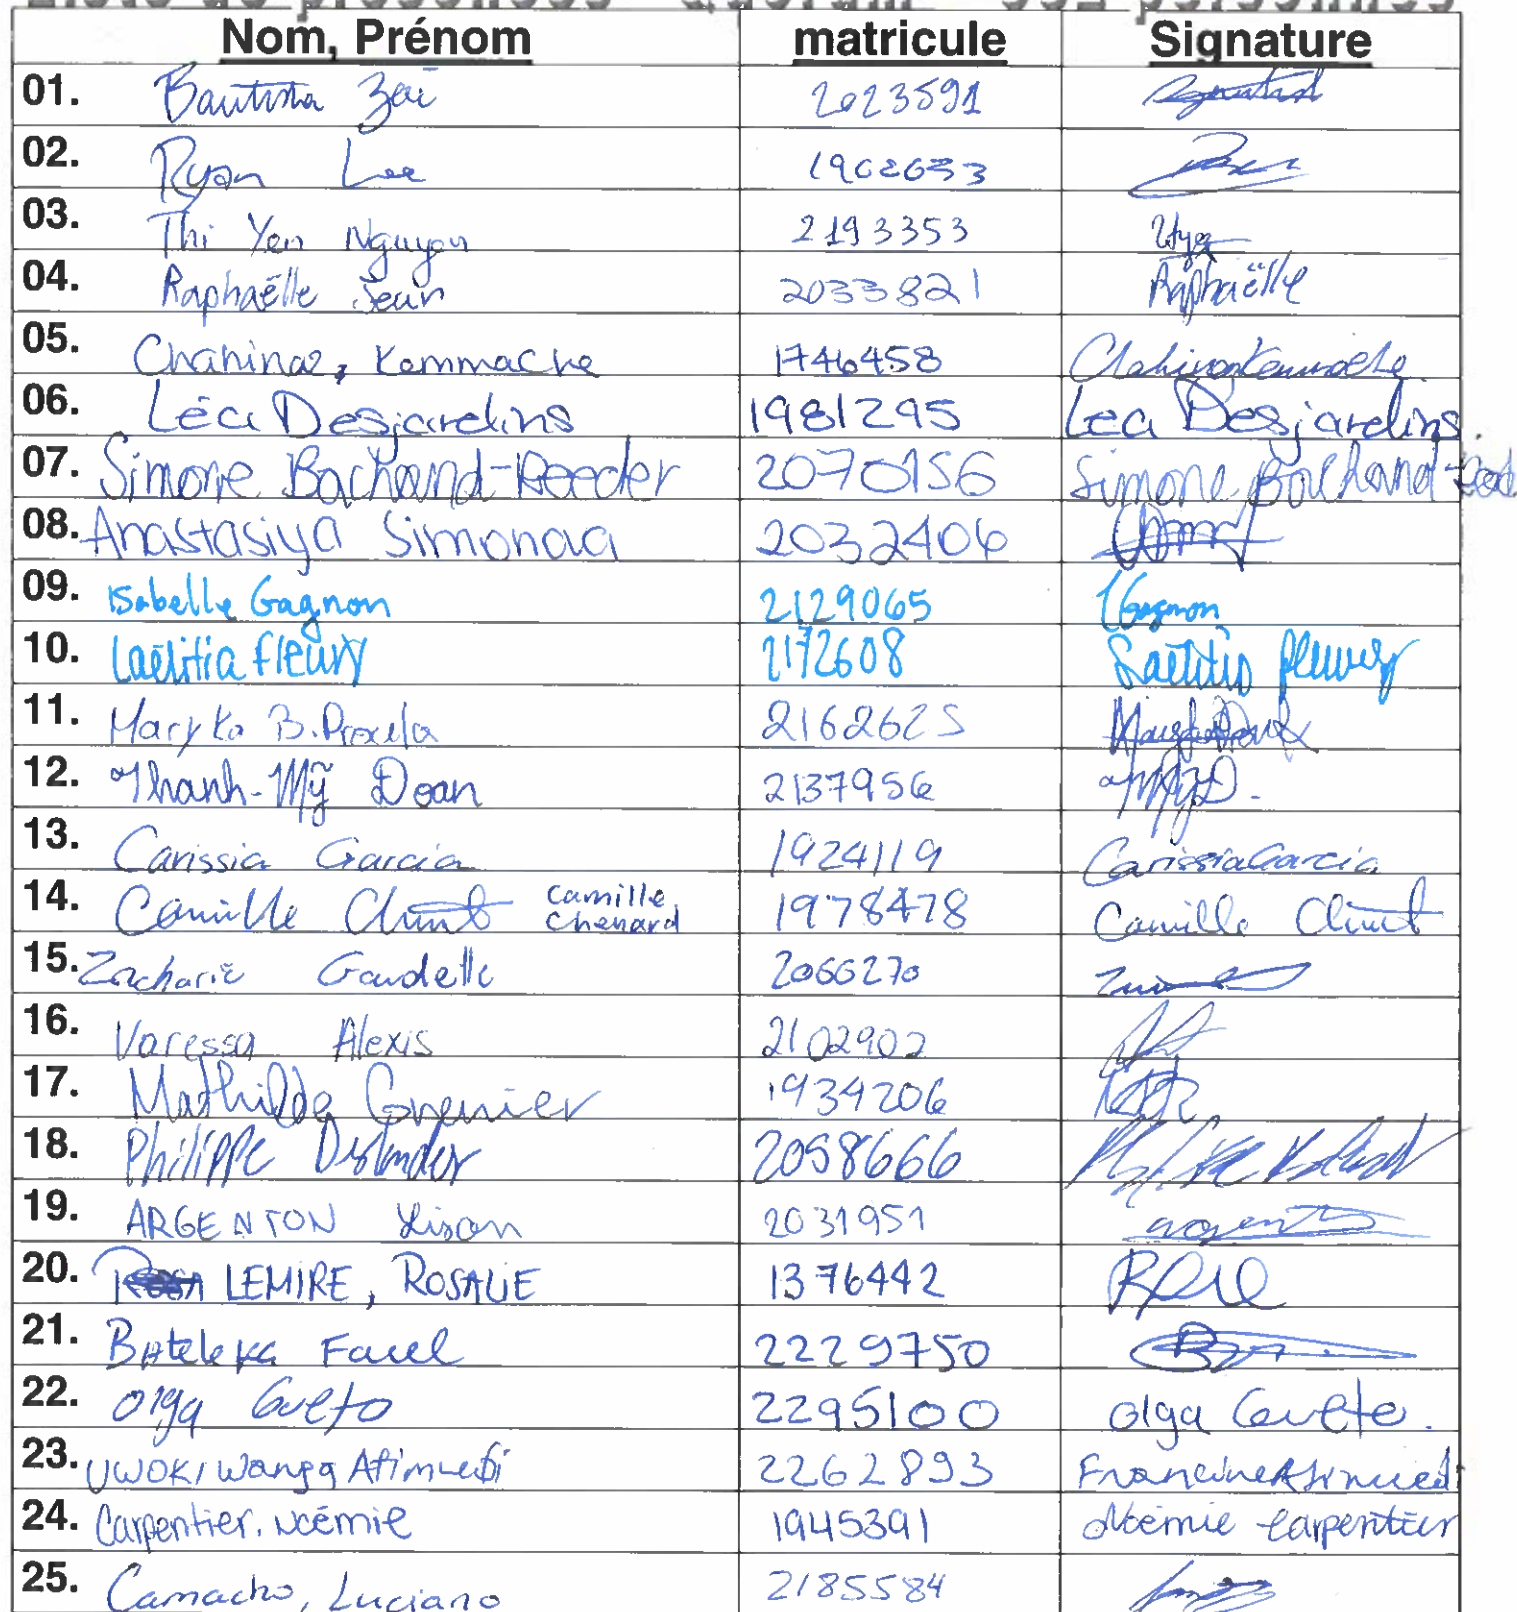 Liste de présences - Quorum - personnes
Nom, Prénom matricule Signature
01. Bautista Zoé 2023591
02. Ryan Lee 1902653
03. Thi Yen Nguyen 2193353
04. Raphaëlle Jean 2033821 Raphaëlle
05. Chahinaz, Kemmache 1746458 Chahinaz Kemmache
06. Léa Desjardins 1981295 Léa Desjardins
07. Simone Bachand-Reeder 2070156 Simone Bachand-
08. Anastasiya Simonova 2032406
09. Isabelle Gagnon 2129065 I Gagnon
10. Laëtitia Fleury 2172608 Laëtitia Fleury
11. Maryka B. 2162625
12. Thanh-Mỹ Doan 2137956 TMyD.
13. Carissia Garcia 1924119 Carissia Garcia
14. Camille Camille Chenard 1978478 Camille
15. Zacharie Gaudette 2066270
16. Vanessa Alexis 2102902
17. Mathilde Grenier 1934206
18. Philippe 2058666 Philippe
19. ARGENTON Lison 2031951 argenton
20. LEMIRE, ROSALIE 1376442
21. Bateleka Farel 2229750
22. Olga Gueto 2295100 Olga
23. UWOKI Wanga Afimuedi 2262893 Francine Afimuedi
24. Carpentier, Noémie 1945391 Noémie Carpentier
25. Camacho, Luciano 2185584